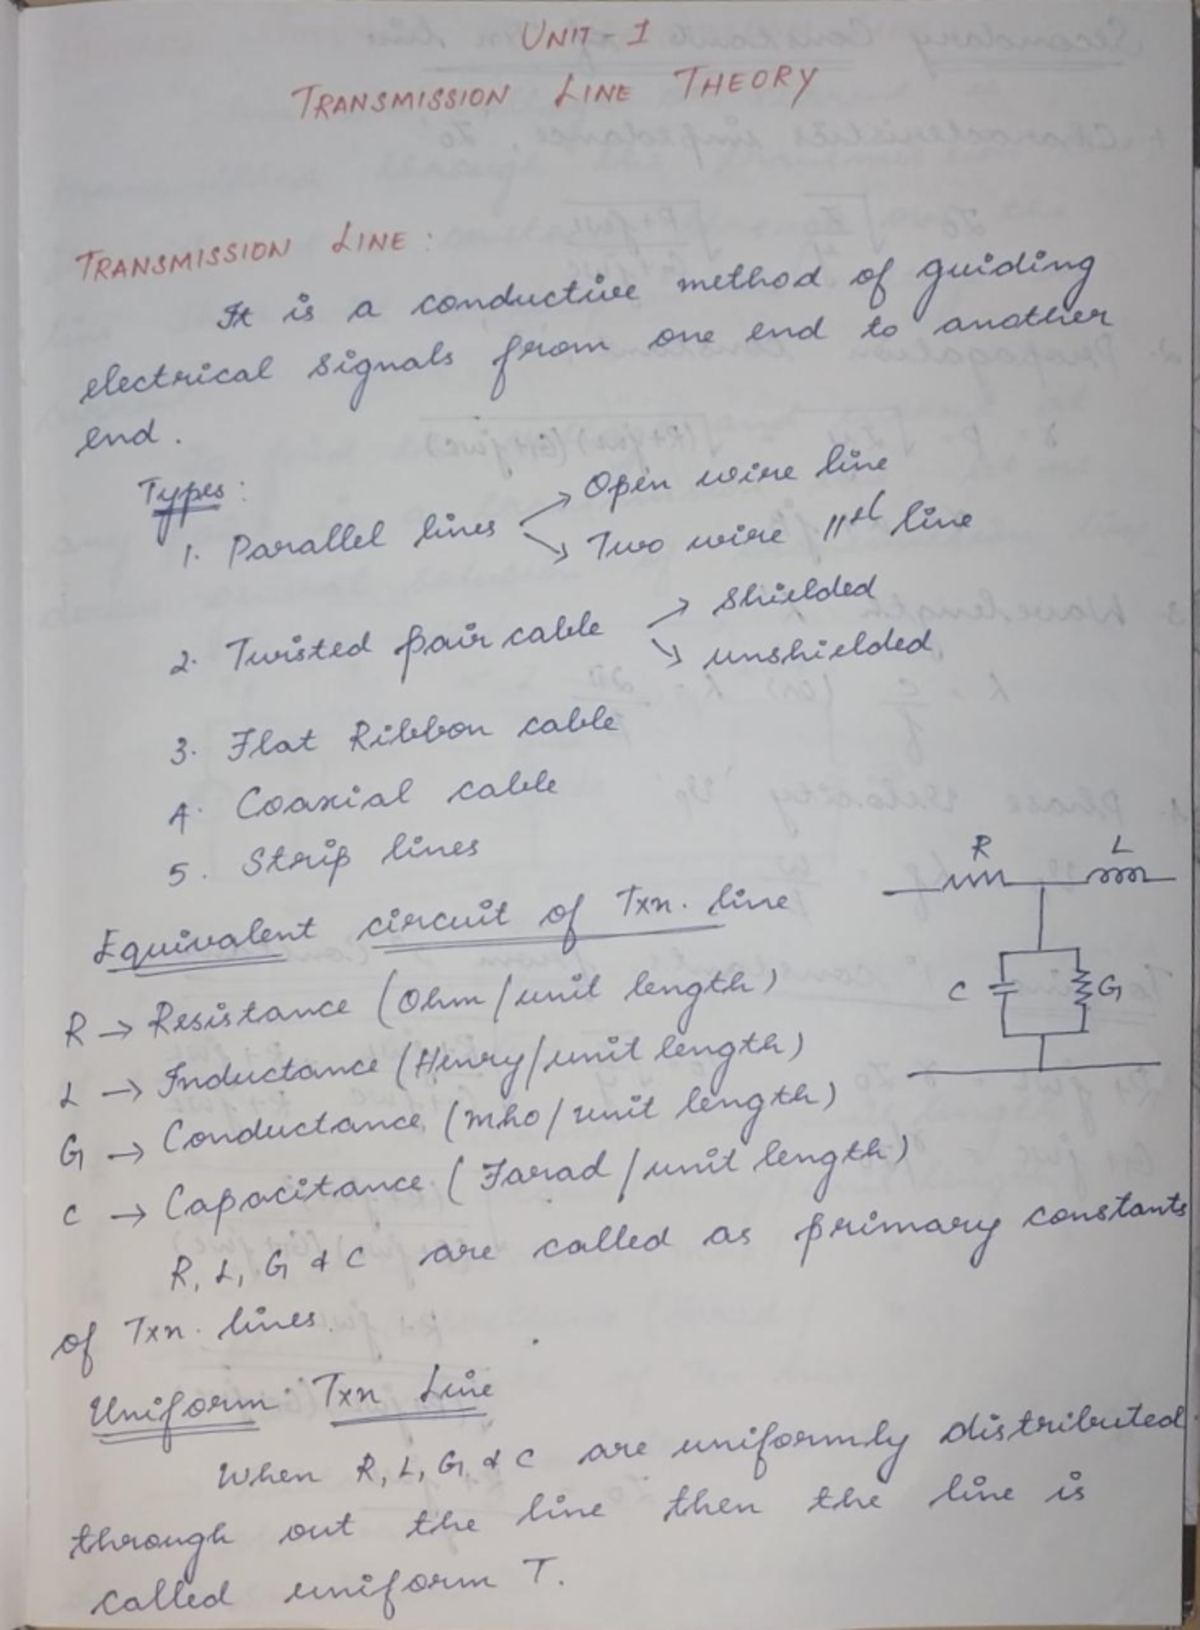 UNIT-1
TRANSMISSION LINE THEORY
TRANSMISSION LINE:
It is a conductive method of guiding
electrical signals from one end to another
end.
Types:
1. Parallel lines → Open wire line
→ Two wire 11el line
2. Twisted pair cable → shielded
→ unshielded
3. Flat Ribbon cable
4. Coaxial cable
5. Strip lines
Equivalent circuit of Txn. line
R L
C G
R → Resistance (Ohm/unit length)
L → Inductance (Henry/unit length)
G → Conductance (mho/unit length)
C → Capacitance (Farad/unit length)
R, L, G & C are called as primary constants
of Txn. lines.
Uniform Txn Line
When R, L, G, & C are uniformly distributed
through out the line then the line is
called uniform T.